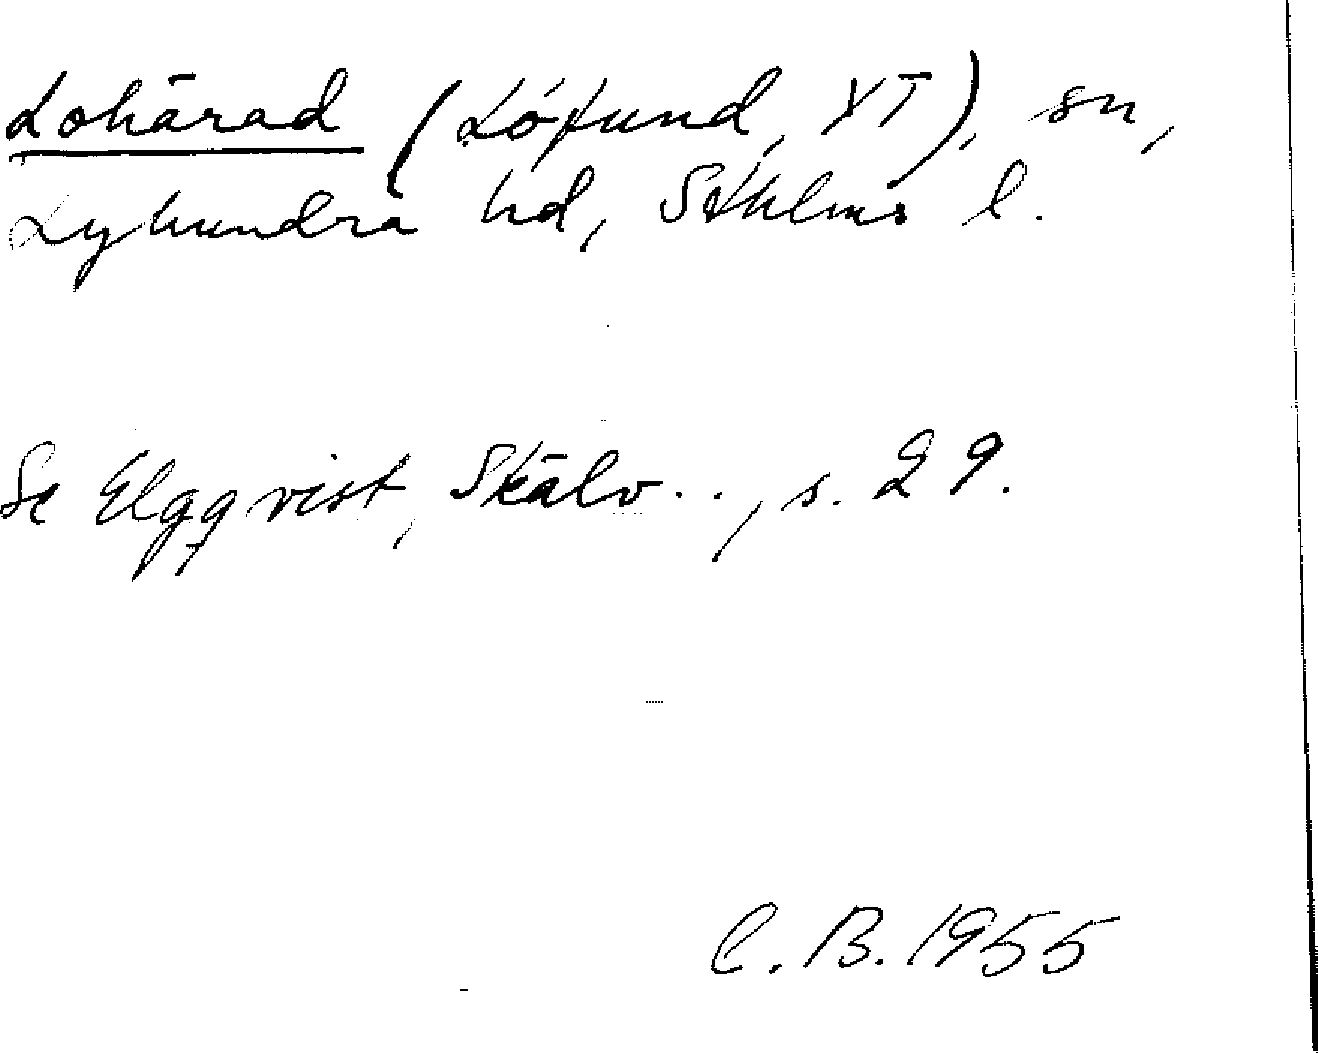 Lohärad (Lófund, YT), sn,
Lyhundra hd, Sthlms l.
Se Elgqvist, Skälv . . , s. 29.
C. B. 1955